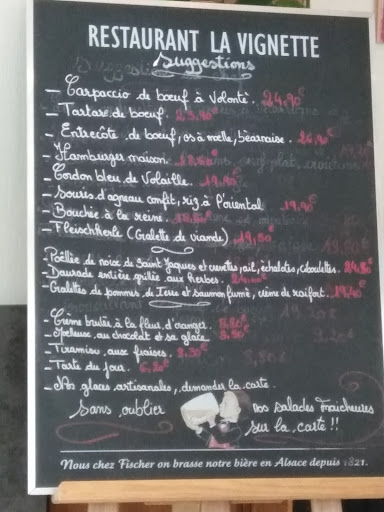 RESTAURANT LA VIGNETTE
Suggestions
- Carpaccio de bœuf à Volonté. 24,90€
- Tartare de bœuf. 23,90€
- Entrecôte de bœuf, os à moelle, béarnaise. 26,90€
- Hamburger maison. 18,60€
- Cordon bleu de Volaille. 19,90€
- Souris d'agneau confit, riz à l'oriental 19,90€
- Bouchée à la reine.
- Fleischkerle (Galette de viande) 19,50€
- Poêllée de noix de Saint Jaques et crevettes, ail, échalotes, ciboulettes. 24,80€
- Daurade entière grillée aux herbes.
- Galettes de pommes de Terre et saumon fumé, crème de raifort. 19,40€
- Crème brulée à la fleur d'oranger. 8,80€
- au chocolat et sa glace 9,50€
- Tiramisu aux fraises. 8,50€
- Tarte du jour. 6,20€
- Nos glaces artisanales, demander la carte.
Sans oublier nos salades fraîcheures
sur la carte !!
Nous chez Fischer on brasse notre bière en Alsace depuis 1821.